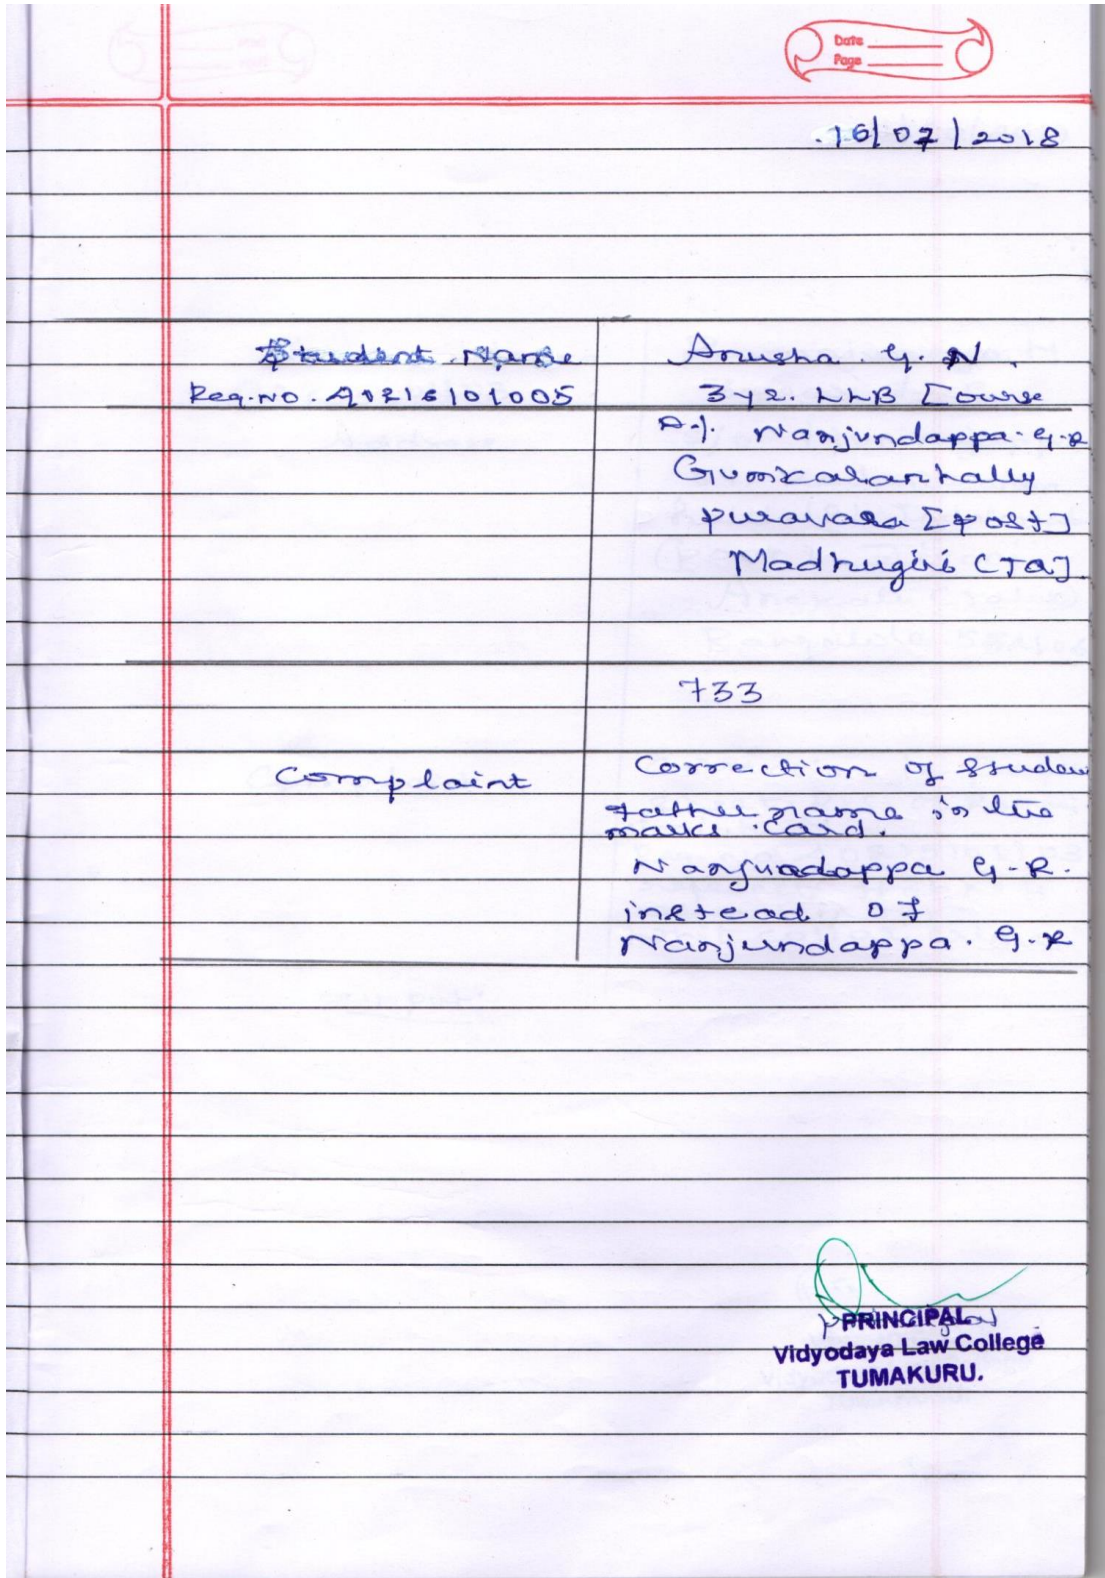 Date
Page
16/07/2018
Student Name Anusha. G. N.
Reg.No. A0216101005 3 yr. LLB Course
D/. Nanjundappa. G.R
Puravara [Post]
Madhugiri [TQ].
733
Complaint Correction of Studen
father name in the
marks card.
Nanjuadappa G.R.
instead of
Nanjundappa. G.R
PRINCIPAL
Vidyodaya Law College
TUMAKURU.